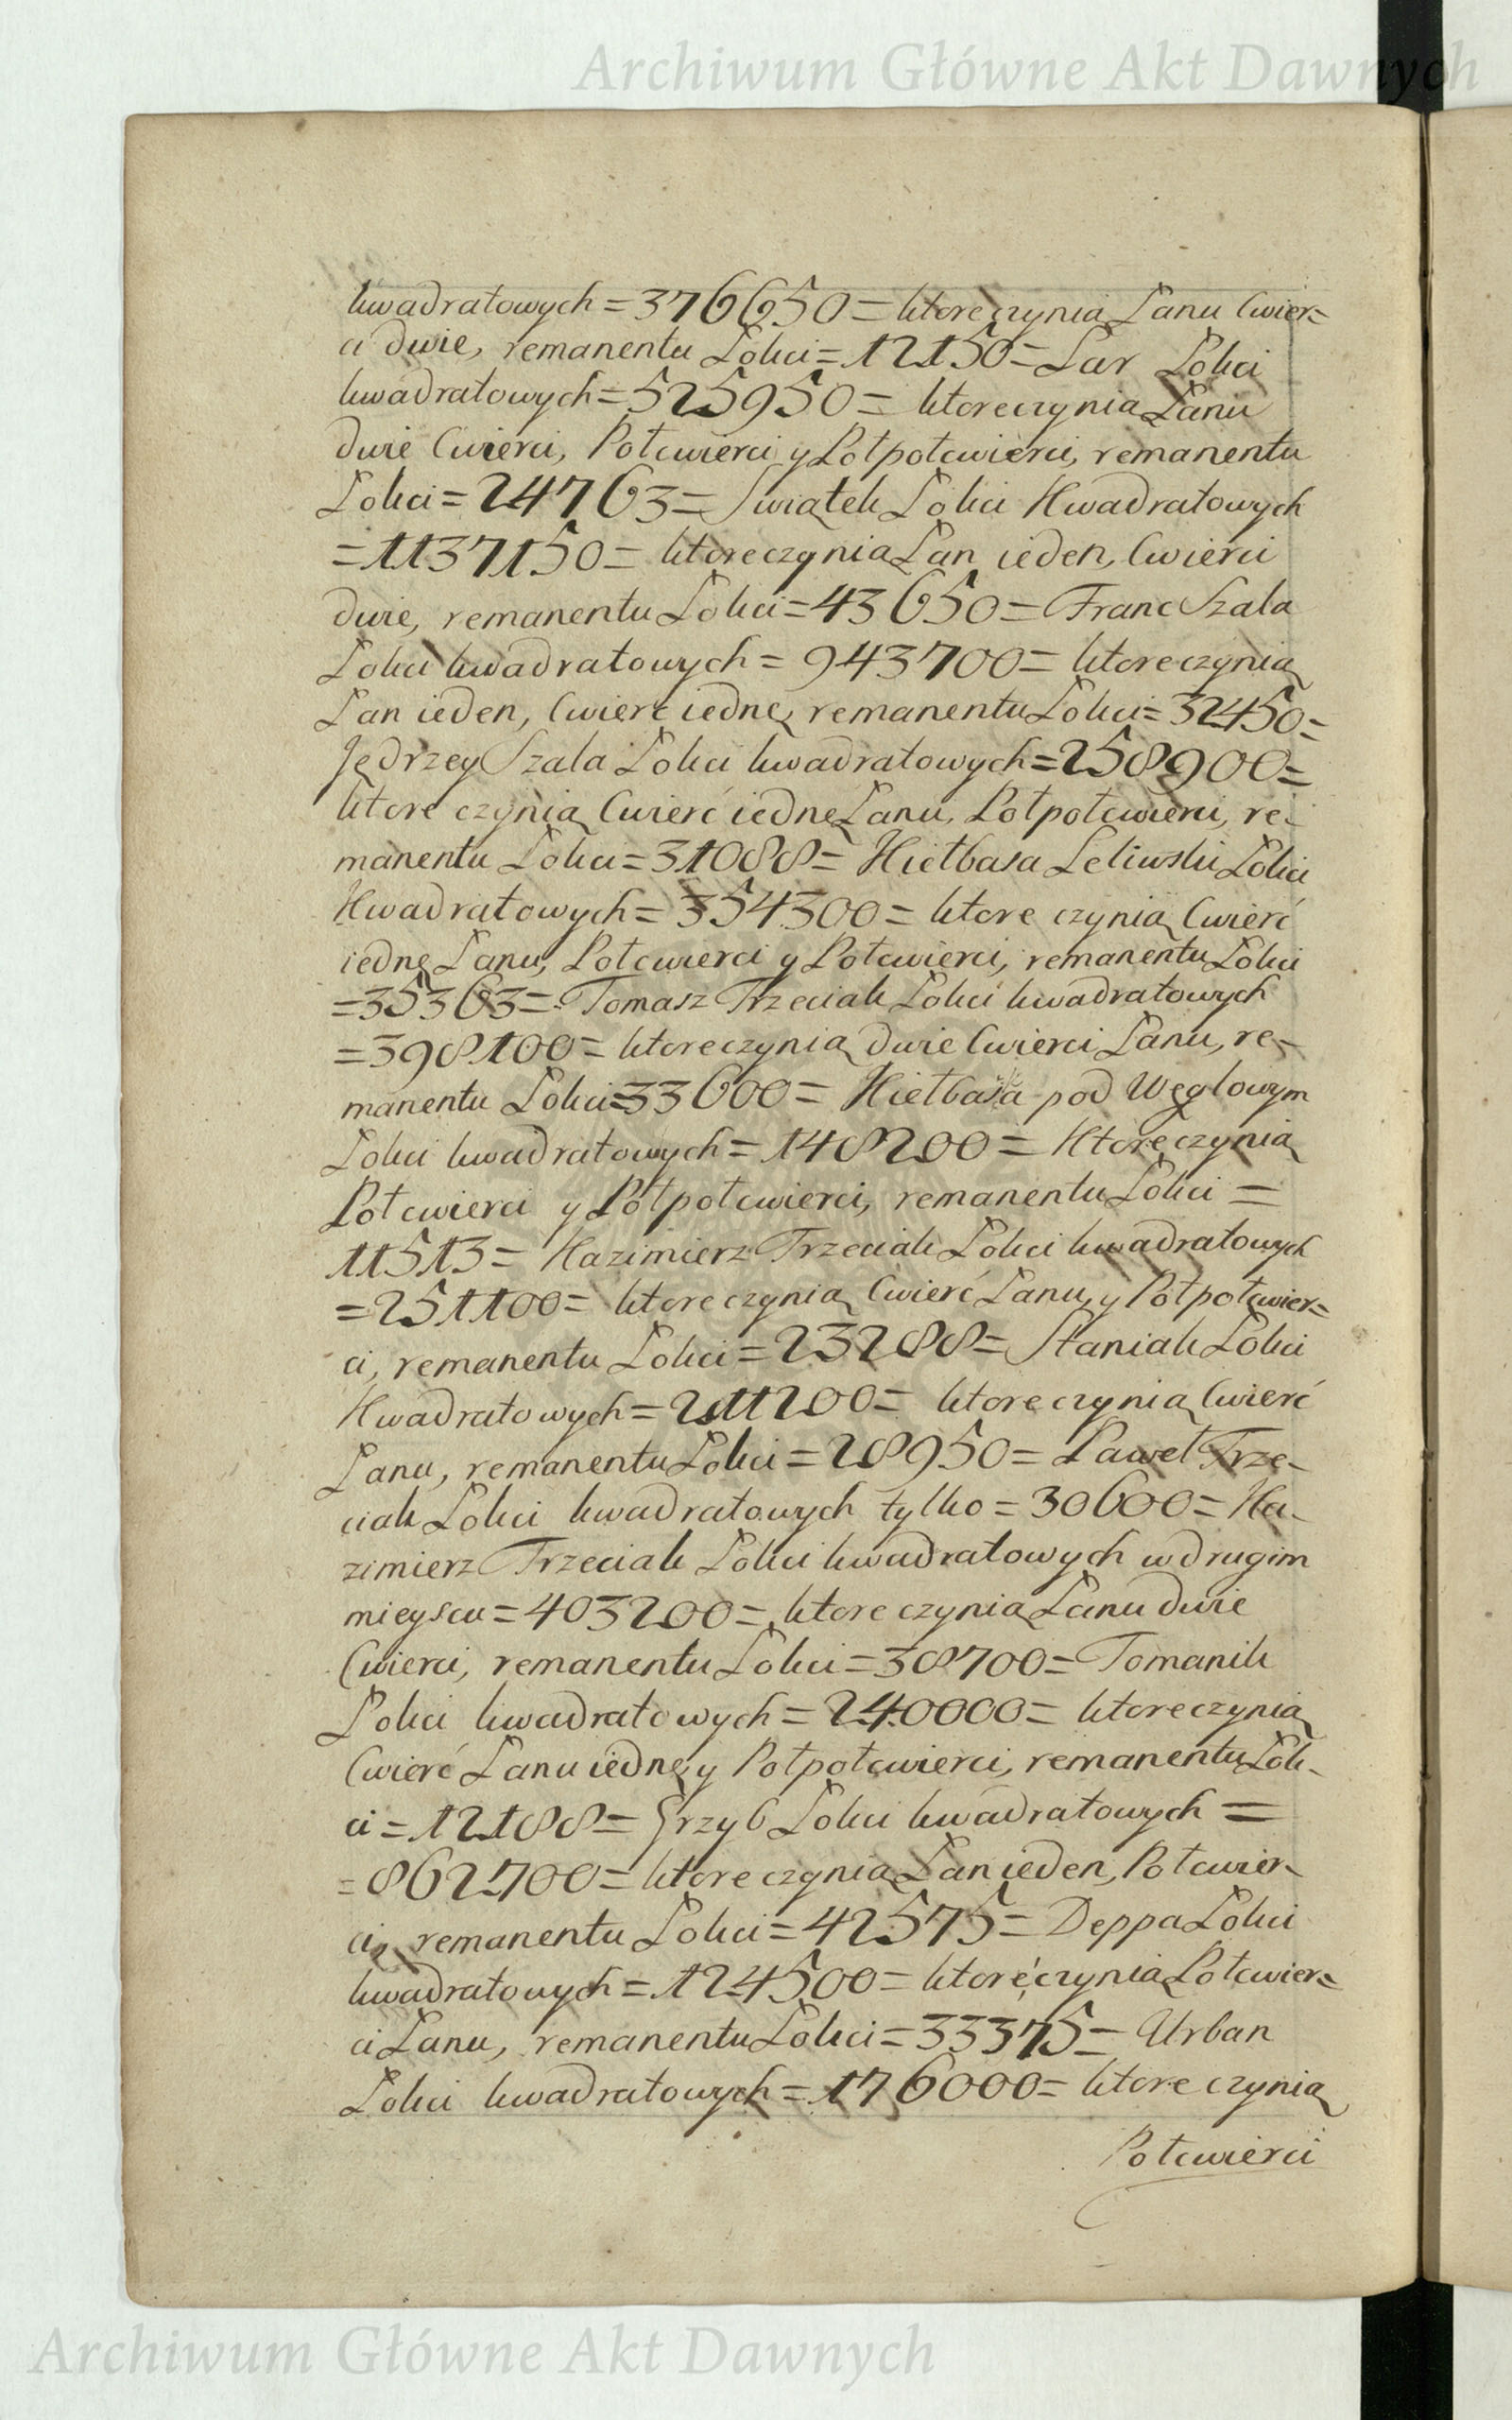 Archiwum Główne Akt Dawnych
kwadratowych = 376650 = ktore czynią Łanu Cwier=
ci dwie, remanentu Łokci = 12150 = Łar Łokci
kwadratowych = 525950 = ktore czynią Łanu
dwie Cwierci, Połcwierci y Połpołcwierci, remanentu
Łokci = 24763 = Swiątek Łokci Kwadratowych
= 1137150 = ktore czynią Łan ieden, Cwierci
dwie, remanentu Łokci = 43650 = Franc Szala
Łokci kwadratowych = 943700 = ktore czynią
Łan ieden, Cwierć iednę, remanentu Łokci = 32450 =
Jędrzey Szala Łokci kwadratowych = 258900 =
ktore czynią Cwierć iednę Łanu, Połpołcwierci, re-
manentu Łokci = 31088 = Kiełbasa Leliwski Łokci
Kwadratowych = 354300 = ktore czynią Cwierć
iednę Łanu, Połcwierci y Połcwierci, remanentu Łokci
= 35363 = Tomasz Trzeciak Łokci kwadratowych
= 398100 = ktore czynią dwie Cwierci Łanu, re-
manentu Łokci = 33600 = Kiełbasa pod Węglowym
Łokci kwadratowych = 148200 = Ktore czynią
Połcwierci y Połpołcwierci, remanentu Łokci =
11513 = Kazimierz Trzeciak Łokci kwadratowych
= 251100 = ktore czynią Cwierć Łanu, y Połpołcwier=
ci, remanentu Łokci = 23288 = Staniak Łokci
Kwadratowych = 211200 = ktore czynią Cwierć
Łanu, remanentu Łokci = 28950 = Paweł Trze-
ciak Łokci kwadratowych tylko = 30600 = Ka-
zimierz Trzeciak Łokci kwadratowych w drugim
mieyscu = 403200 = ktore czynią Łanu dwie
Cwierci, remanentu Łokci = 38700 = Tomanik
Łokci kwadratowych = 240000 = ktore czynią
Cwierć Łanu iednę y Połpołcwierci, remanentu Łok-
ci = 12188 = Grzyb Łokci kwadratowych =
= 862700 = ktore czynią Łan ieden, Połcwier-
ci, remanentu Łokci = 42575 = Deppa Łokci
kwadratowych = 124500 = ktore czynią Połcwier=
ci Łanu, remanentu Łokci = 33375 = Urban
Łokci kwadratowych = 176000 = ktore czynią
Połcwierci
Archiwum Główne Akt Dawnych